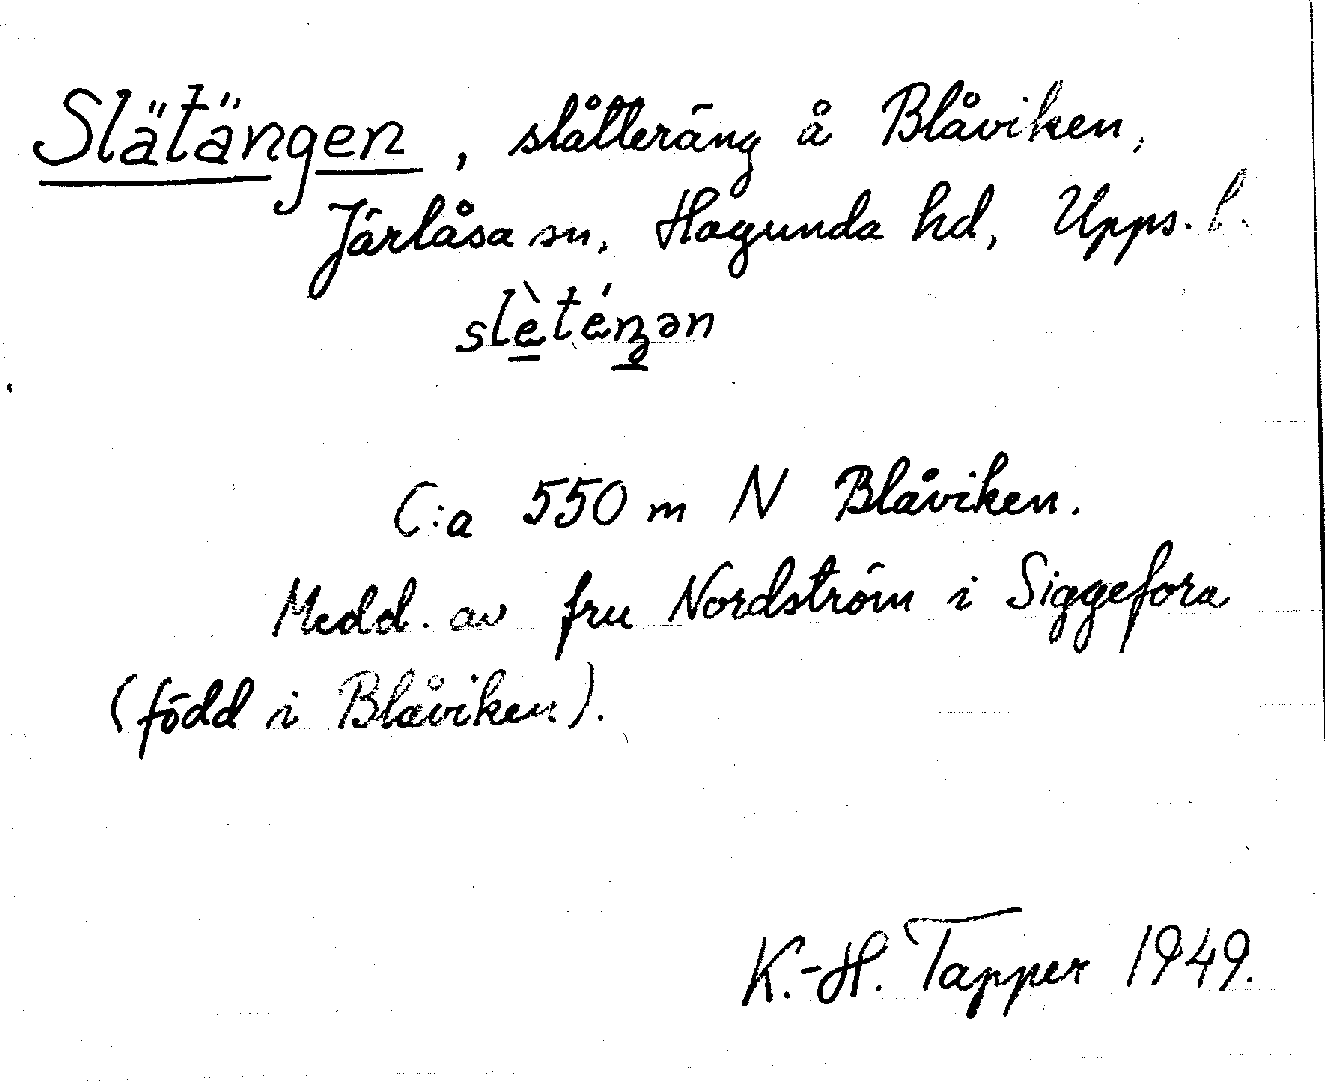 Slätängen, slåtteräng å Blåviken,
Järlåsa sn, Hagunda hd, Upps. l.
slè̠téŋ̠ən
C:a 550 m N Blåviken.
Medd. av fru Nordström i Siggefora
(född i Blåviken).
K.-H. Tapper 1949.